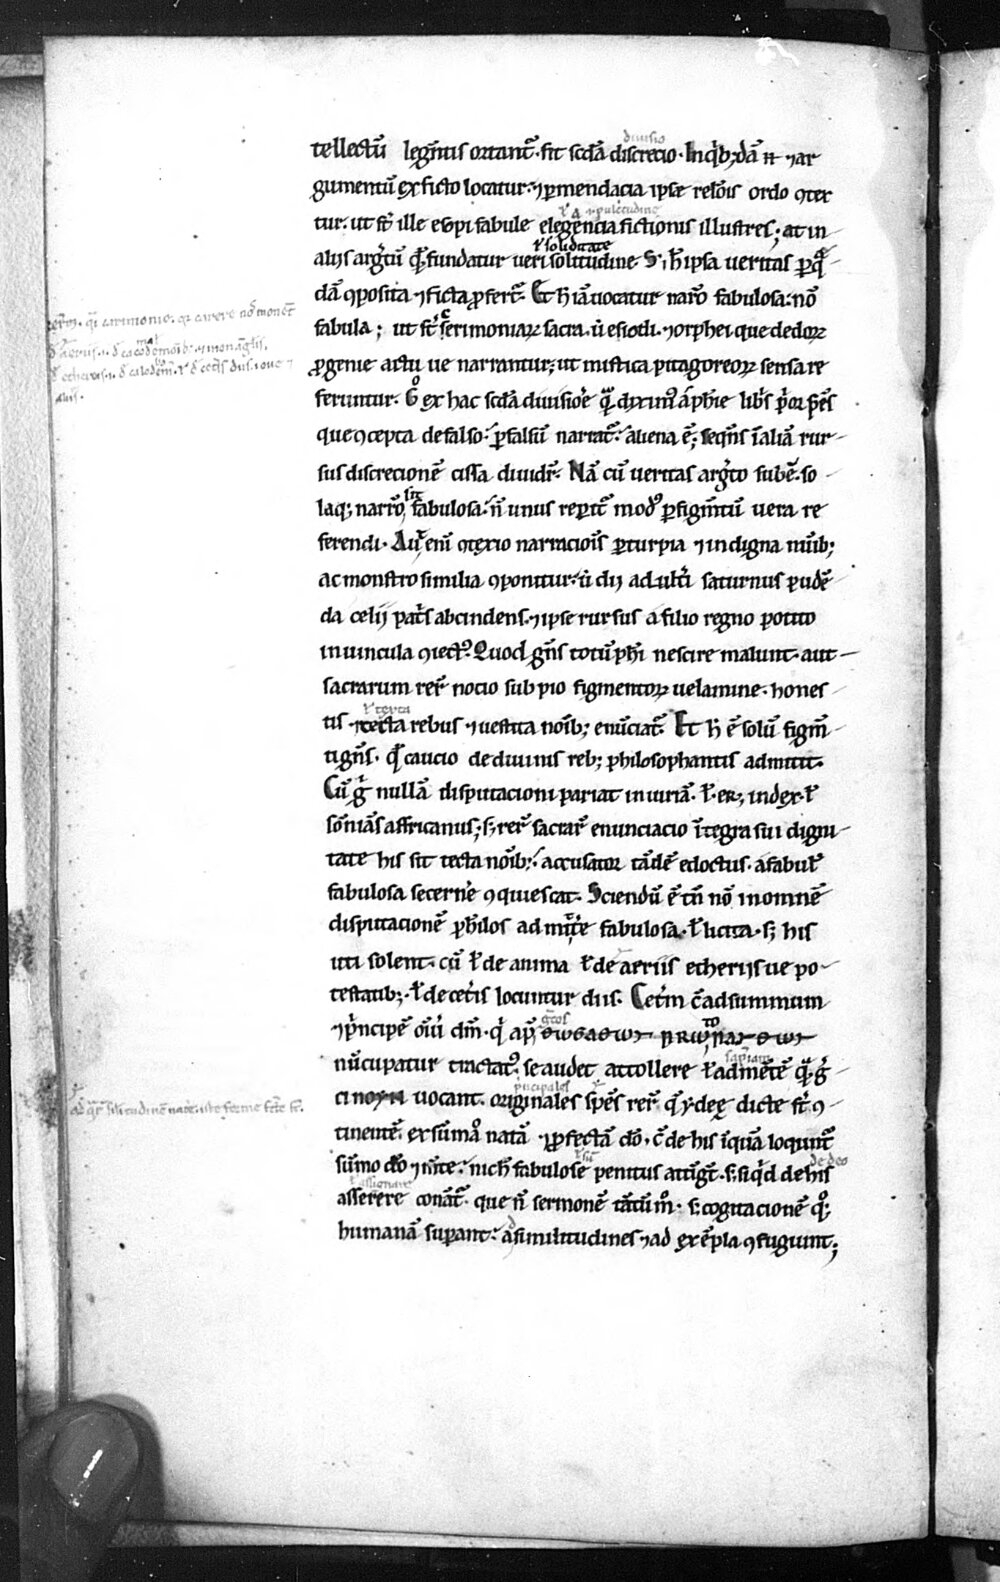 diuisio
tellectū legētis ortant᷑. fit scd̄a discrecio. In q̇bꝫdā n̄ ⁊ ar
gumentū ex ficto locatur. ⁊ ꝑ mendacia ipse relōis ordo ꝯtex
ł a pulcritudine
tur. ut st̄ ille esopi fabule elegencia fictionis illustres; at in
ł soliditate
aliis argm̄tū q̇ꝺ fundatur ueri solitudine. S; h̄ ipsa ueritas ꝑ q̄
dā ꝯposita ⁊ ficta ꝓfert᷑. Et h̄ iā uocatur narr̄o fabulosa. nō
fabula; ut st̄ serimoniaꝝ sacra. ut esiodi. ⁊ orphei que de deoꝝ
ꝓgenie actu ue narrantur; ut mistica pitagoreoꝝ sensa re
feruntur. G̊ ex hac scd̄a diuisiōe quā diximꝰ a ph̄ie libs p̄or sp̄es
que ꝯcepta de falso. ꝑ falsū narrat᷑. aliena ē; seqn̄s ī aliā rur
sus discrecionē cissa diuidr̄. Nā cū ueritas argm̄to subē. so
sit
laqꝫ narrō fabulosa. n̄ unus reꝑit᷑ modꝰ ꝑ figm̄tū uera re
ferendi. Aut enī ꝯtexio narraciōis ꝑ turpia ⁊ indigna nūībꝫ
ac monstro similia ꝯponitur. ut dij adult̄i saturnus pudē
da celii patris abcindens. ⁊ ipse rursus a filio regno potito
in uincula ꝯiectꝰ. Quod gn̄s totū phi nescire malunt. aut
sacrarum rer̄ nocio sub pio figmentoꝝ uelamine. hones
ł tecta
tis ⁊ tecta rebus ⁊ uestita noībꝫ enūciat᷑. Et h̄ ē solū figm̄
ti gn̄s. q̇ꝺ caucio de diuinis rebꝫ philosophantis admittit.
Cū g̊ nullā disputacioni pariat iniuriā. ł er; index. ł
sōniās affricanus; sꝫ rer̄ sacrar̄ enunciacio ītegra sui digni
tate his sit tecta noībꝫ. accusator tādē edoctus. a fabul̄
fabulosa secern̄e ꝯquiescat. Sciendū ē tn̄ nō in omnē
disputacionē philos admitt̄e fabulosa. ł licita. sꝫ his
uti solent. cū ł de anima ł de aeriis etheriisue po
testatibꝫ. ł de cet̄is locuntur diis. Cet̄m c̄ ad summum
⁊ p̄ncipē oīū dm̄. q̇ aꝑ
nūcupatur tractatꝰ se audet attollere ł ad mētē quā gr̄
p̄ncipales
ci noyn uocant. originales sp̄es rer̄. que ydeę dicte st̄ ꝯ
tinentē. ex sūmo natā ⁊ ꝓfectā deo. c̄ de his īquā locunt᷑
de deo
sūmo deo ⁊ m̄te. nich̄ fabulose penitus attīgt̄. sꝫ siqͥd de his
ł assignare
asserere conāt᷑. que n̄ sermonē tātūm̊. sꝫ cogitacionē q̊qꝫ
humanā supant. ad similitudines ⁊ ad exēpla ꝯfugiunt;